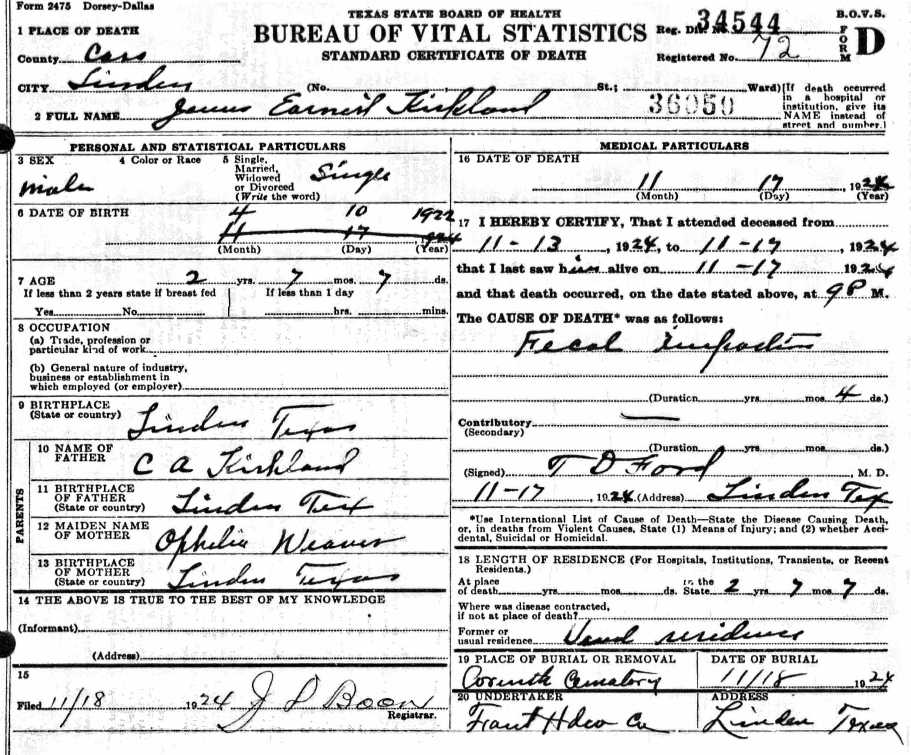 Form 2475 Dorsey-Dallas
TEXAS STATE BOARD OF HEALTH
BUREAU OF VITAL STATISTICS
STANDARD CERTIFICATE OF DEATH
Reg. Dis. No. 34544
Registered No. 72
B.O.V.S.
FORM D
1 PLACE OF DEATH
County Cass
CITY Linden (No. St.; Ward)
36050
[If death occurred in a hospital or institution, give its NAME instead of street and number.]
2 FULL NAME James Earnest Kirkland
PERSONAL AND STATISTICAL PARTICULARS
3 SEX Male
4 Color or Race
5 Single, Married, Widowed or Divorced (Write the word) Single
6 DATE OF BIRTH
4 10 1922
11 17 1924
(Month) (Day) (Year)
7 AGE 2 yrs. 7 mos. 7 ds.
If less than 2 years state if breast fed
Yes No
If less than 1 day
hrs. mins.
8 OCCUPATION
(a) Trade, profession or particular kind of work
(b) General nature of industry, business or establishment in which employed (or employer)
9 BIRTHPLACE (State or country) Linden Texas
PARENTS
10 NAME OF FATHER C A Kirkland
11 BIRTHPLACE OF FATHER (State or country) Linden Tex
12 MAIDEN NAME OF MOTHER Ophelia Weaver
13 BIRTHPLACE OF MOTHER (State or country) Linden Texas
14 THE ABOVE IS TRUE TO THE BEST OF MY KNOWLEDGE
(Informant)
(Address)
15
Filed 11/18 1924 J L Boon
Registrar.
MEDICAL PARTICULARS
16 DATE OF DEATH
11 17 1924
(Month) (Day) (Year)
17 I HEREBY CERTIFY, That I attended deceased from
11-13, 1924, to 11-17, 1924
that I last saw him alive on 11-17 1924
and that death occurred, on the date stated above, at 9P M.
The CAUSE OF DEATH* was as follows:
Fecal Impaction
(Duration) yrs. mos. 4 ds.)
Contributory
(Secondary)
(Duration yrs. mos. ds.)
(Signed) T D Ford M. D.
11-17, 1924 (Address) Linden Tex
*Use International List of Cause of Death—State the Disease Causing Death, or, in deaths from Violent Causes, State (1) Means of Injury; and (2) whether Accidental, Suicidal or Homicidal.
18 LENGTH OF RESIDENCE (For Hospitals, Institutions, Transients, or Recent Residents.)
At place of death yrs. mos. ds. in the State 2 yrs 7 mos 7 ds.
Where was disease contracted, if not at place of death?
Former or usual residence Usual residence
19 PLACE OF BURIAL OR REMOVAL
Corinth Cematery
DATE OF BURIAL
11/18 1924
20 UNDERTAKER
Hdw Co
ADDRESS
Linden Texas